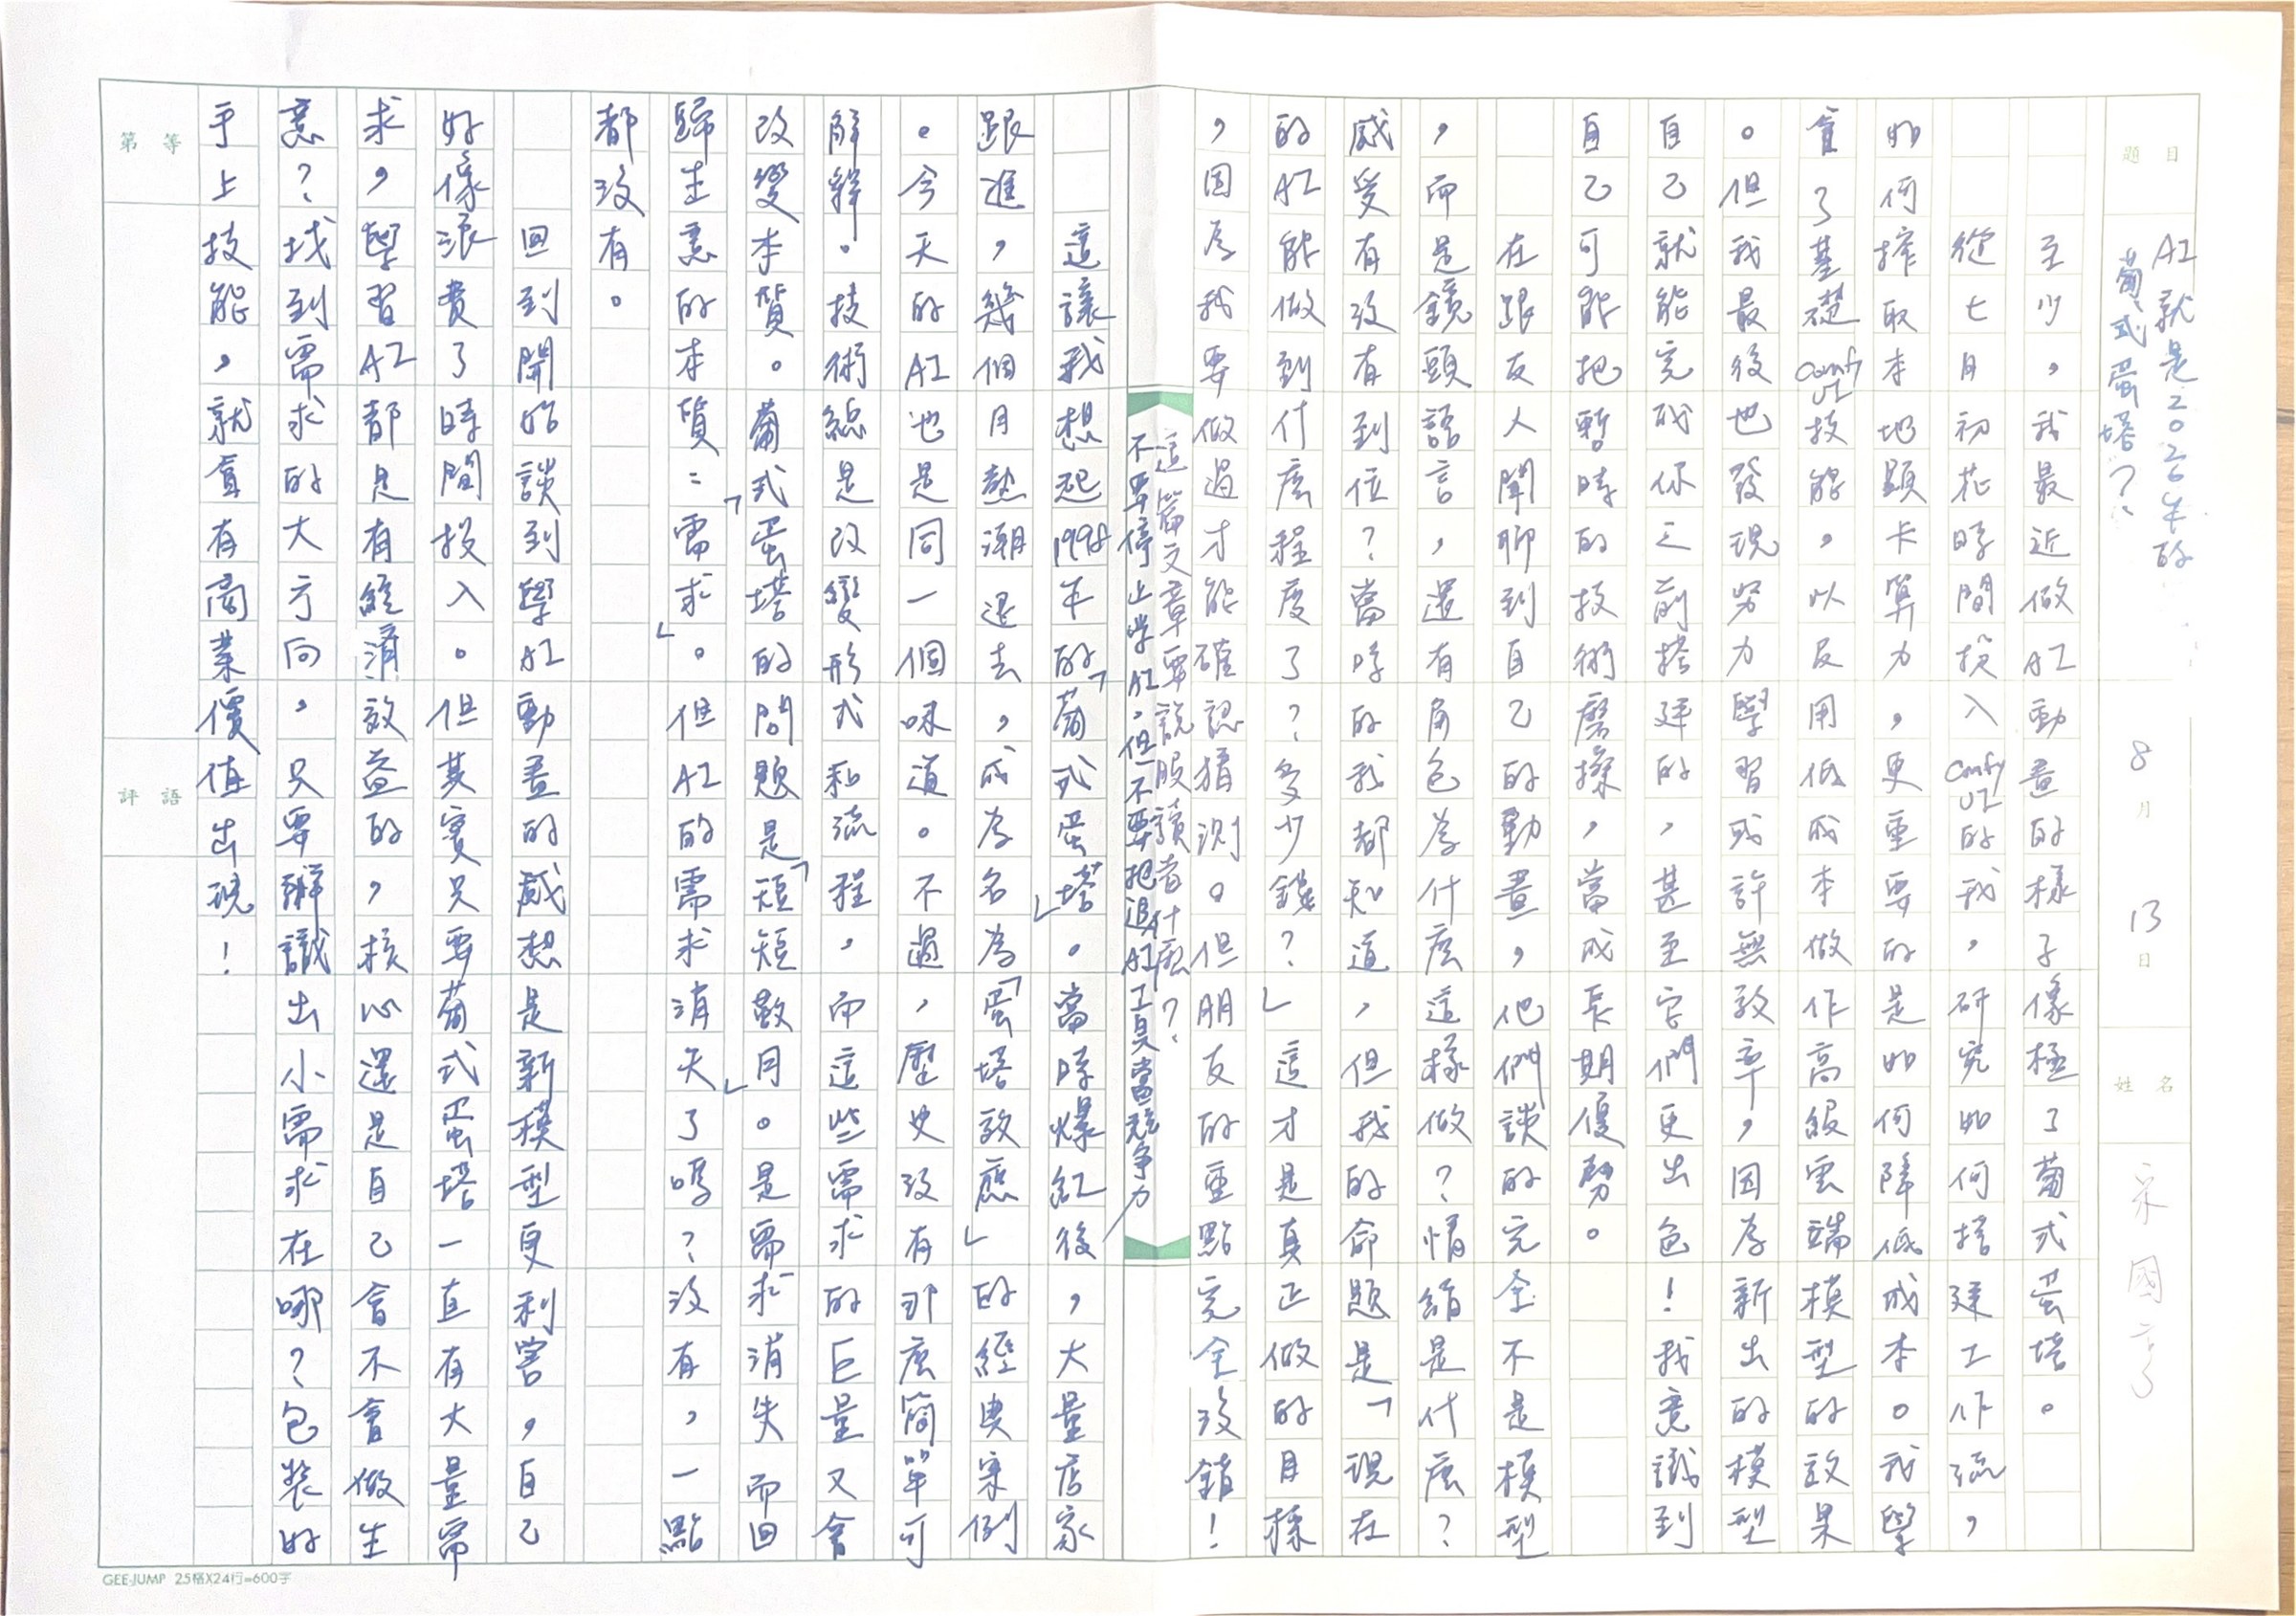 題目
AI就是2026年的
葡式蛋塔？
8月13日
姓名
宋國
至少，我最近做AI動畫的樣子像極了葡式蛋塔。
從七月初花時間投入ComfyUI的我，研究如何搭建工作流，
如何搾取本地顯卡算力，更重要的是如何降低成本。我學
會了基礎ComfyUI技能，以及用低成本做作高級雲端模型的效果
。但我最後也發現努力學習或許無效率，因為新出的模型
自己就能完成你之前搭建的，甚至它們更出色！我意識到
自己可能把暫時的技術磨損，當成長期優勢。
在跟友人閒聊到自己的動畫，他們談的完全不是模型
，而是鏡頭語言，還有角色為什麼這樣做？情緒是什麼？
感受有沒有到位？當時的我都知道，但我的命題是「現在
的AI能做到什麼程度了？多少錢？」這才是真正做的目標
，因為我要做過才能確認猜測。但朋友的重點完全沒錯！
這篇文章要說服讀者什麼？
不要停止学AI，但不要把追AI工具當競争力
這讓我想起1998年的「葡式蛋塔」。當時爆紅後，大量店家
跟進，幾個月熱潮退去，成為名為「蛋塔效應」的經典案例
。今天的AI也是同一個味道。不過，歷史沒有那麼簡單可
解釋。技術總是改變形式和流程，而這些需求的巨量又會
改變本質。葡式蛋塔的問題是「短短數月」。是需求消失而回
歸生意的本質：「需求」。但AI的需求消失了嗎？沒有，一點
都沒有。
回到開始談到學AI動畫的感想是新模型更利害，自己
好像浪費了時間投入。但其實只要葡式蛋塔一直有大量需
求，學習AI都是有經濟效益的，核心還是自己會不會做生
意？找到需求的大方向，只要辨識出小需求在哪？包裝好
手上技能，就會有商業價值出現！
第 等
評語
GEE-JUMP 25格X24行=600字